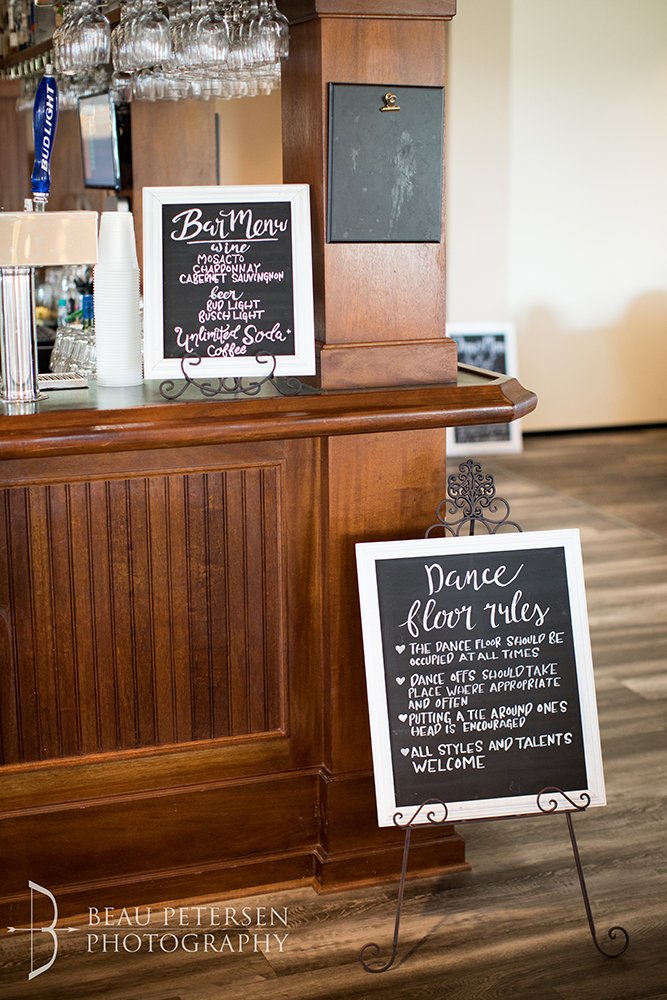 BUD LIGHT
Bar Menu
wine
MOSACTO
CHARDONNAY
CABERNET SAUVIGNON
beer
BUD LIGHT
BUSCH LIGHT
Unlimited Soda +
COFFEE
Dance
floor rules
♥ THE DANCE FLOOR SHOULD BE
OCCUPIED AT ALL TIMES
♥ DANCE OFFS SHOULD TAKE
PLACE WHERE APPROPRIATE
AND OFTEN
♥ PUTTING A TIE AROUND ONES
HEAD IS ENCOURAGED
♥ ALL STYLES AND TALENTS
WELCOME
BEAU PETERSEN
PHOTOGRAPHY